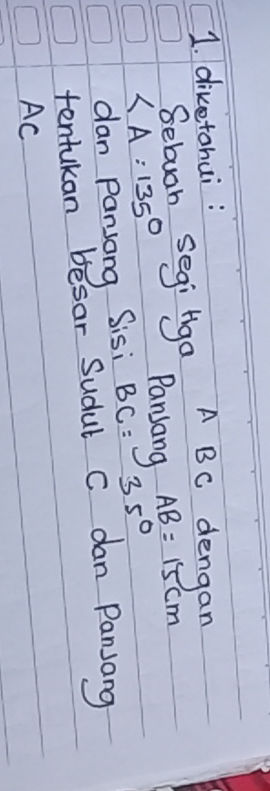 1. diketahui :
Sebuah segi tiga A B C dengan
Panjang AB = 15 cm
< A : 135°
dan Panjang Sisi BC = 35°
tentukan besar Sudut C dan Panjang
AC